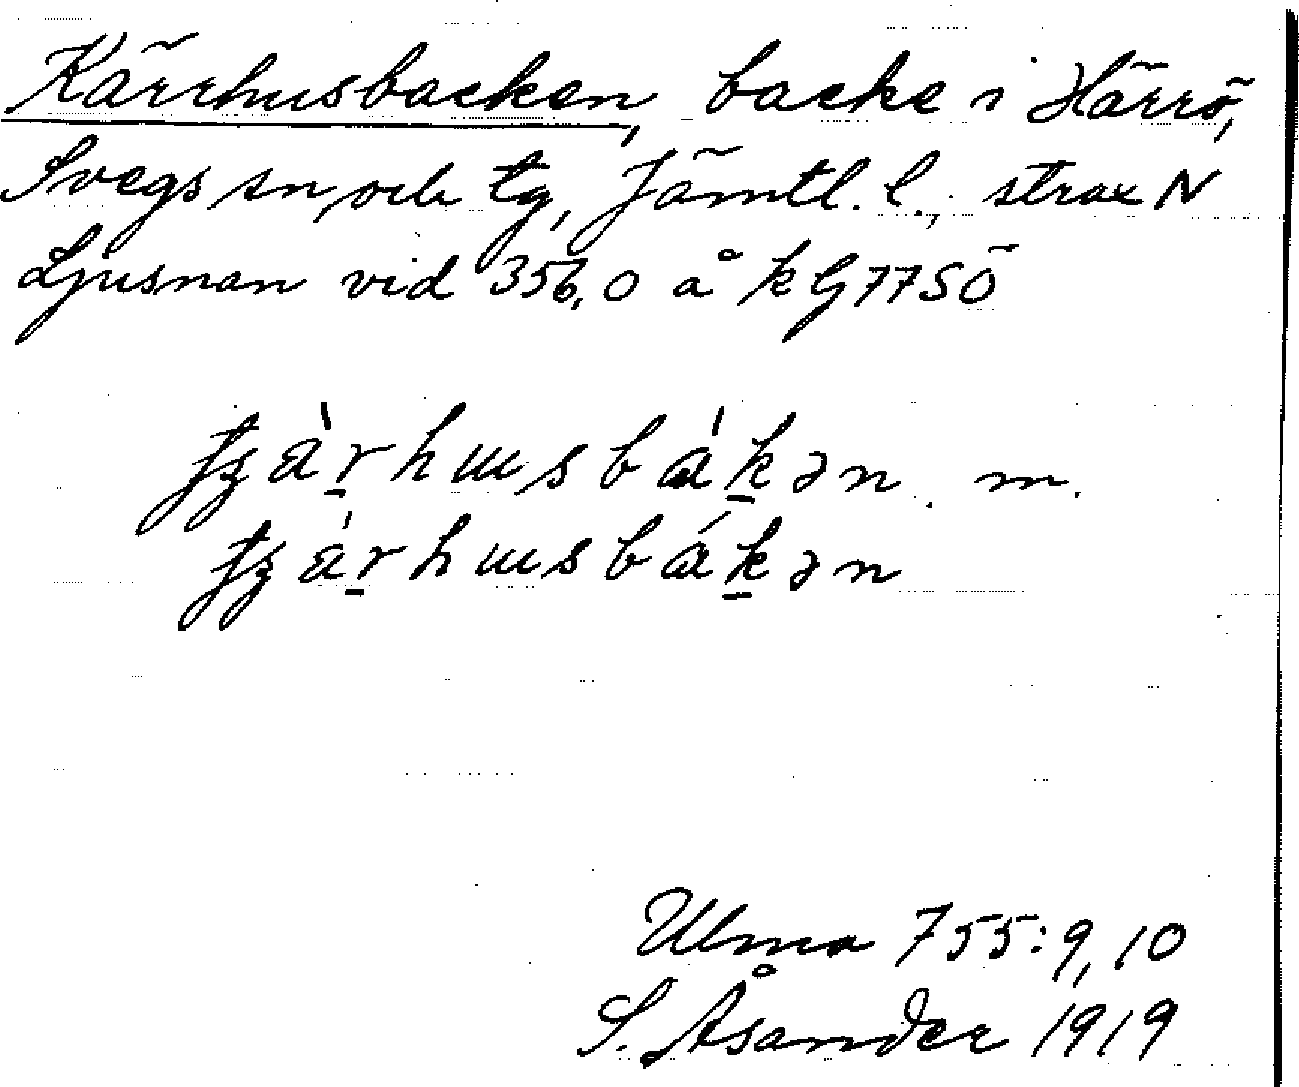 Kärrhusbacken, backe i Härrö,
Svegs sn och tg, Jämtl. l., strax N
Ljusnan vid 356,0 å kG77SÖ
tʒàr̲husbák̲ən m.
tʒár̲husbák̲ən
Ulma 755:9,10
S. Åsander 1919